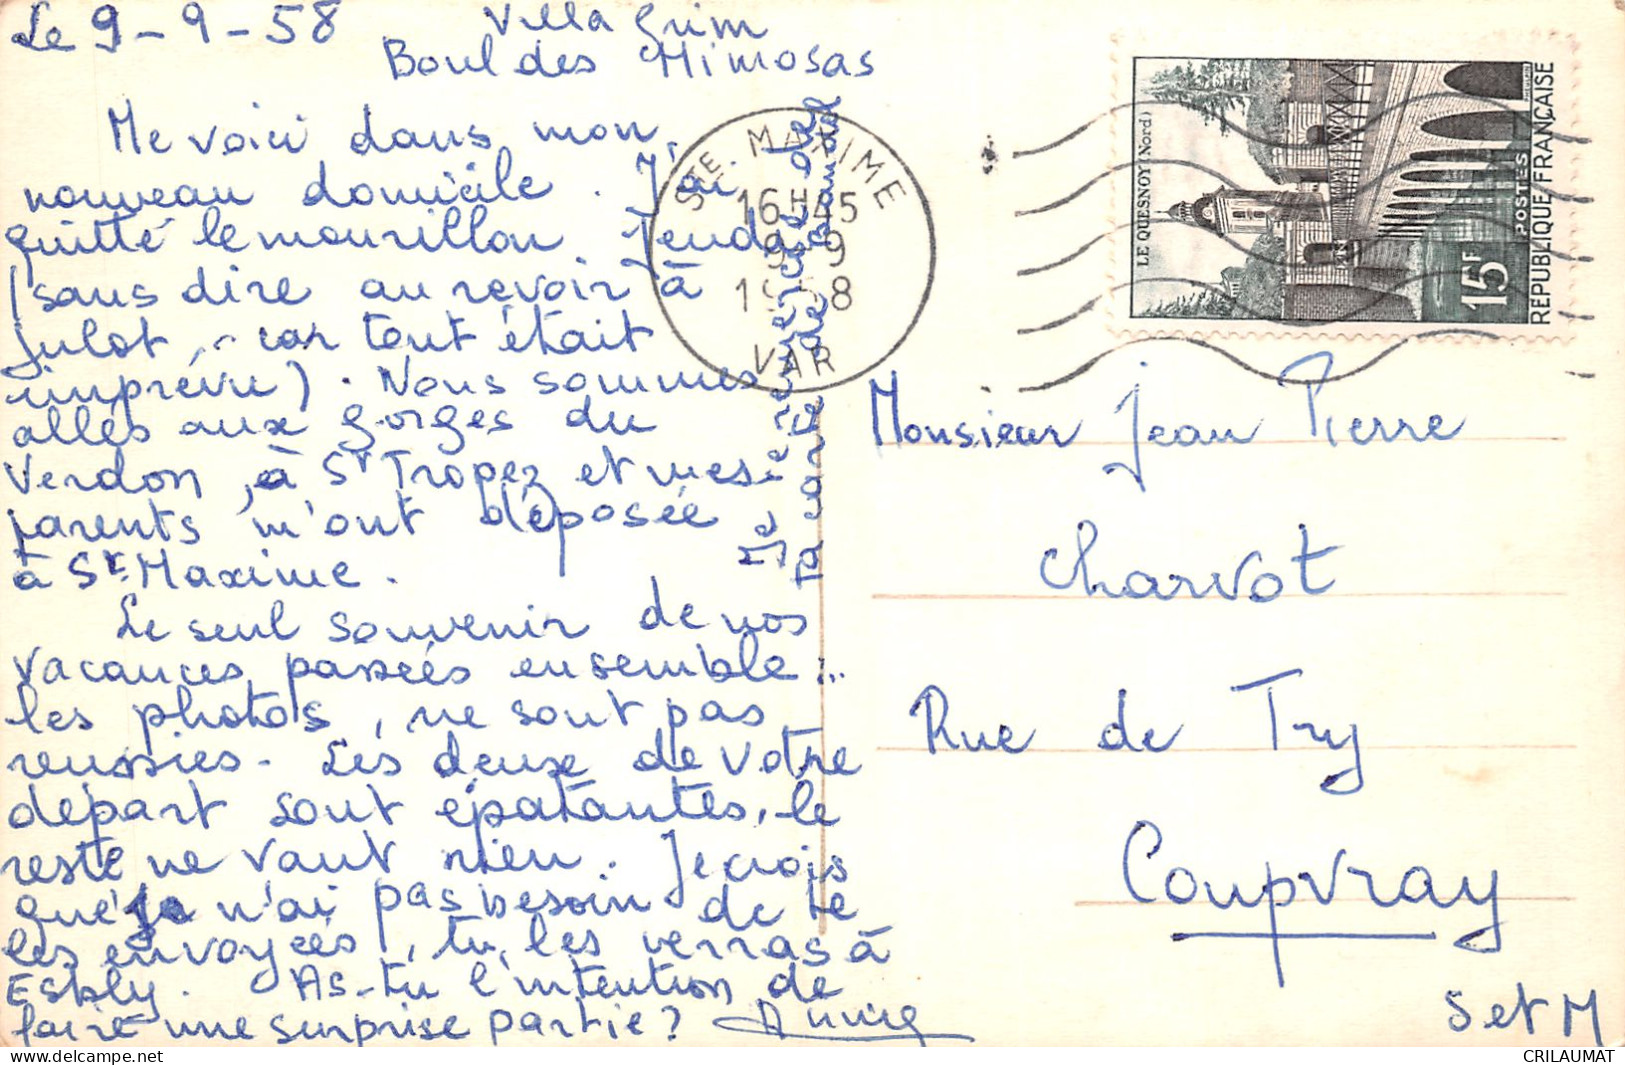 Le 9-9-58
Villa Grim
Boul des Mimosas
Me voici dans mon
nouveau domicile. J'ai
quitté le mourillon Jeudi
(sans dire au revoir à
Julot, car tout était
imprévu). Nous sommes
allés aux gorges du
Verdon, à St Tropez et mes
parents m'ont déposée
à Ste Maxime.
Le seul souvenir de nos
vacances passées ensemble :..
les photos, ne sont pas
reussies. Les deux de votre
départ sont épatantes, le
reste ne vaut rien. Je crois
que je n'ai pas besoin de te
les envoyées, tu les verras à
Esbly. As-tu l'intention de
faire une surprise partie? Annie
la carte de
STE MAXIME
16H45
9-9
1958
VAR
LE QUESNOY (Nord)
15F
POSTES
REPUBLIQUE FRANÇAISE
Monsieur Jean Pierre
Charvot
Rue de Try
Coupvray
S et M
CRILAUMAT